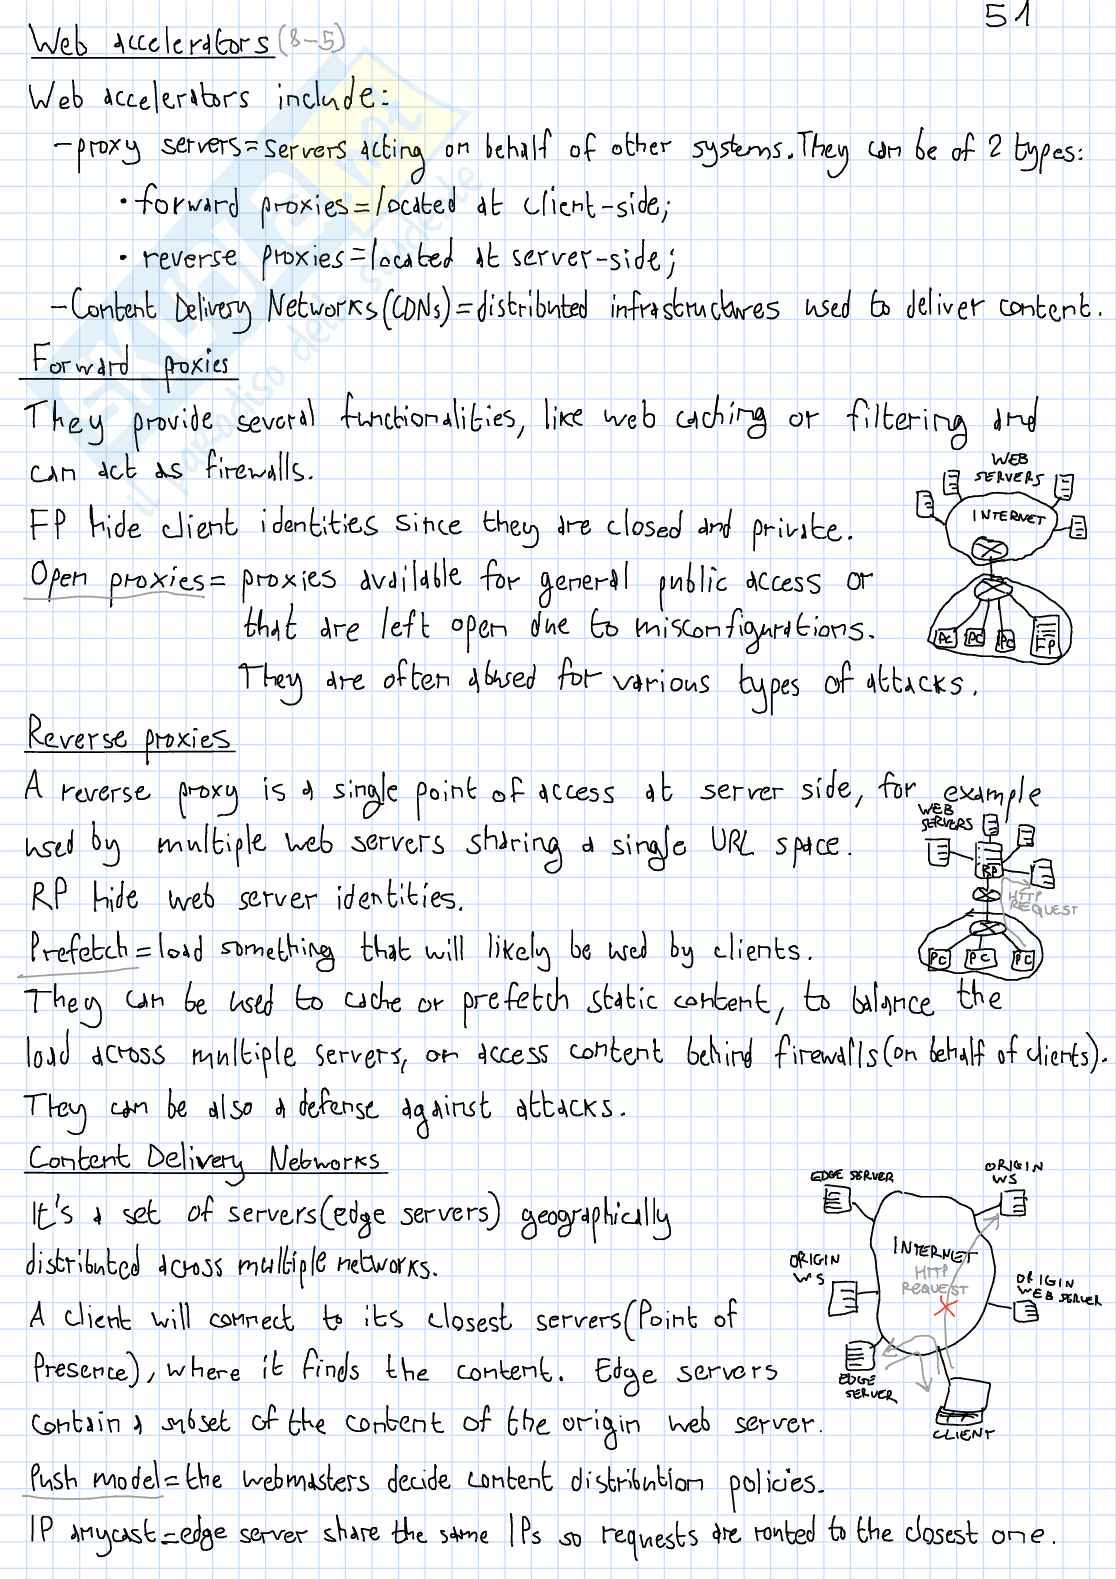 51
Web accelerators (8-5)
Web accelerators include:
-proxy servers=servers acting on behalf of other systems. They can be of 2 types:
• forward proxies=located at client-side;
• reverse proxies=located at server-side;
-Content Delivery Networks (CDNs)=distributed infrastructures used to deliver content.
Forward proxies
They provide several functionalities, like web caching or filtering and
can act as firewalls.
WEB
SERVERS
INTERNET
PC PC PC FP
FP hide client identities since they are closed and private.
Open proxies= proxies available for general public access or
that are left open due to misconfigurations.
They are often abused for various types of attacks.
Reverse proxies
A reverse proxy is a single point of access at server side, for example
used by multiple web servers sharing a single URL space.
WEB
SERVERS
RP
HTTP
REQUEST
PC PC PC
RP hide web server identities.
Prefetch=load something that will likely be used by clients.
They can be used to cache or prefetch static content, to balance the
load across multiple servers, or access content behind firewalls (on behalf of clients).
They can be also a defense against attacks.
Content Delivery Networks
It's a set of servers (edge servers) geographically
distributed across multiple networks.
A client will connect to its closest servers (Point of
Presence), where it finds the content. Edge servers
contain a subset of the content of the origin web server.
EDGE SERVER
ORIGIN
WS
INTERNET
HTTP
REQUEST
ORIGIN
WS
ORIGIN
WEB SERVER
EDGE
SERVER
CLIENT
Push model=the webmasters decide content distribution policies.
IP anycast=edge server share the same IPs so requests are routed to the closest one.
SKUOLA.net
il paradiso dello studente